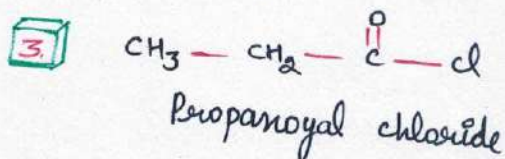 3. CH3 — CH2 — C — Cl
O
Propanoyal chloride